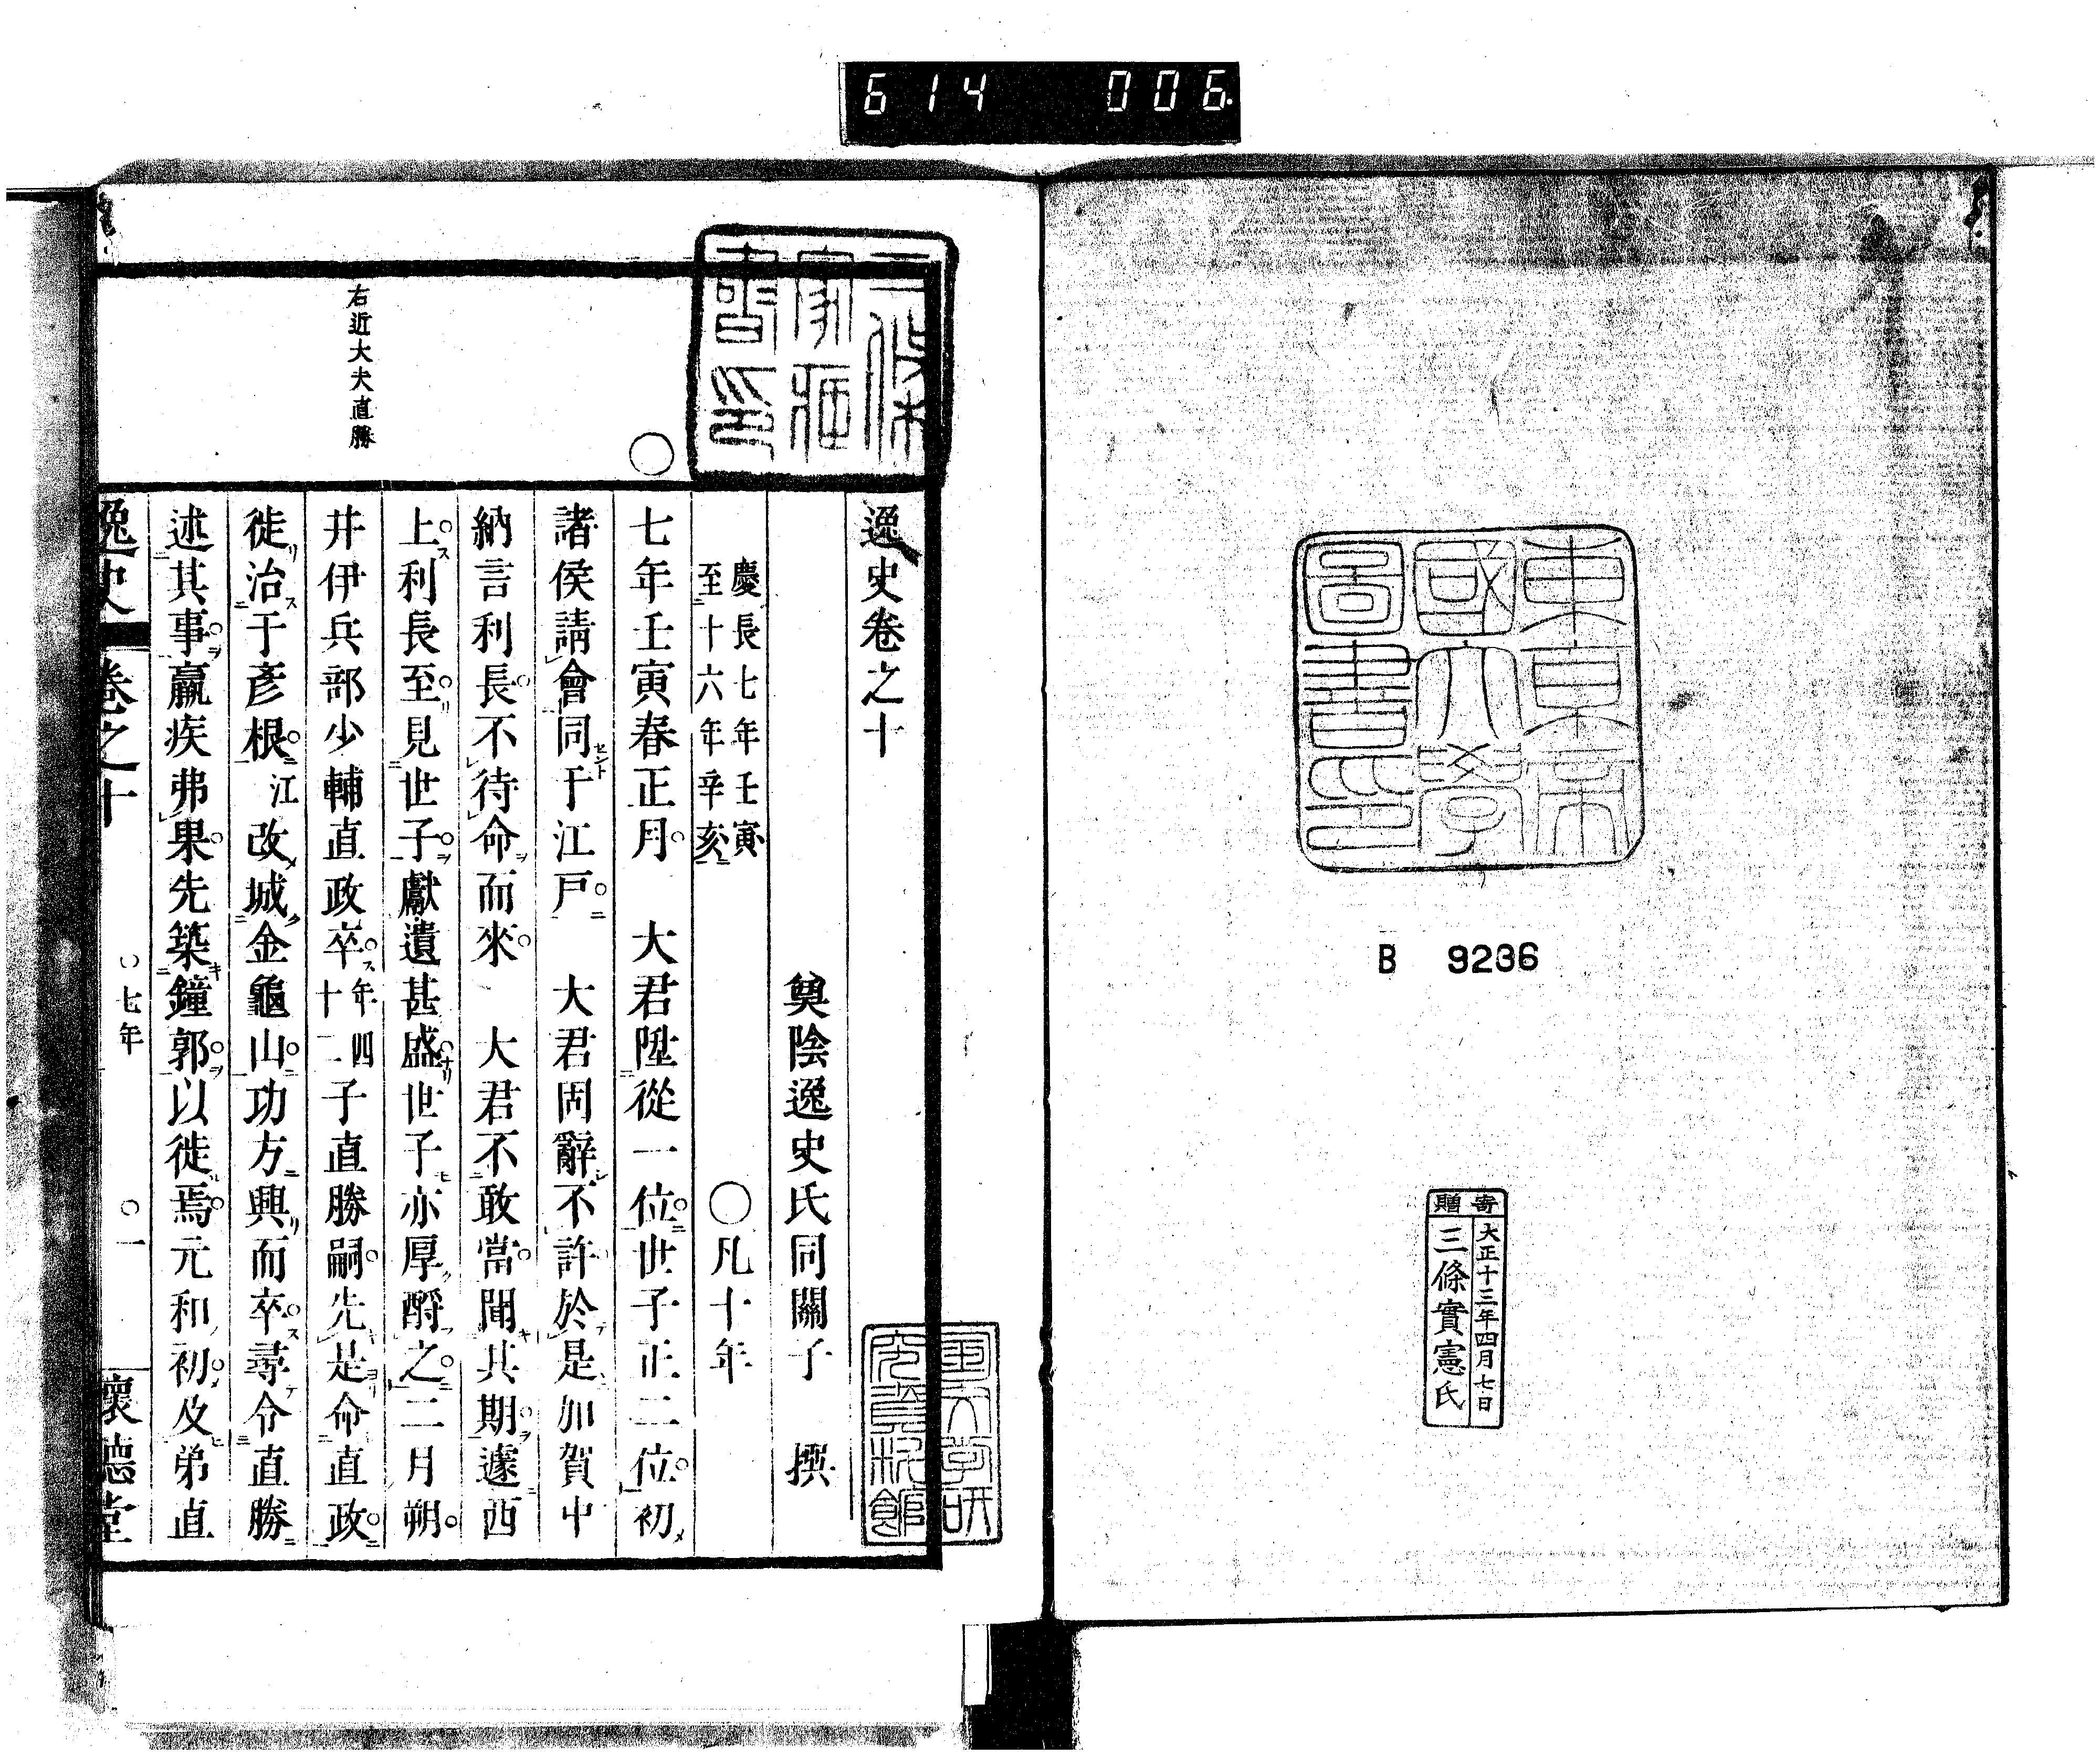 614 006
東京帝
國大學
圖書印
B 9236
寄贈
大正十三年四月七日
三條實憲氏
三條
家藏
書印
逸史卷之十
奠陰逸史氏同關子 撰
慶長七年壬寅
至二十六年辛亥 ○凡十年
○
七年壬寅春正月。 大君陞從一位。世子正二位。初
諸侯請會同于江戸。 大君固辭不許於是加賀中
納言利長。不待命而來。 大君不敢當。聞其期。遽西
上。利長至。見世子。獻遺甚盛。世子亦厚酹之。二月朔。
右近大夫直勝
井伊兵部少輔直政卒。年四十二子直勝嗣。先是命直政。
徙治于彥根。江改城金龜山。功方興而卒。尋令直勝
述其事。羸疾弗果。先築鐘郭。以徙焉。元和初。及弟直
逸史 卷之十 ○七年 ○一 懷德堂